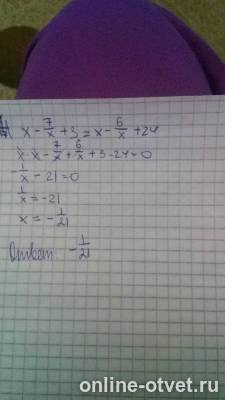 x - 7/x + 3 = x - 6/x + 24
x - x - 7/x + 6/x + 3 - 24 = 0
- 1/x - 21 = 0
1/x = -21
x = - 1/21
Ответ - 1/21
online-otvet.ru